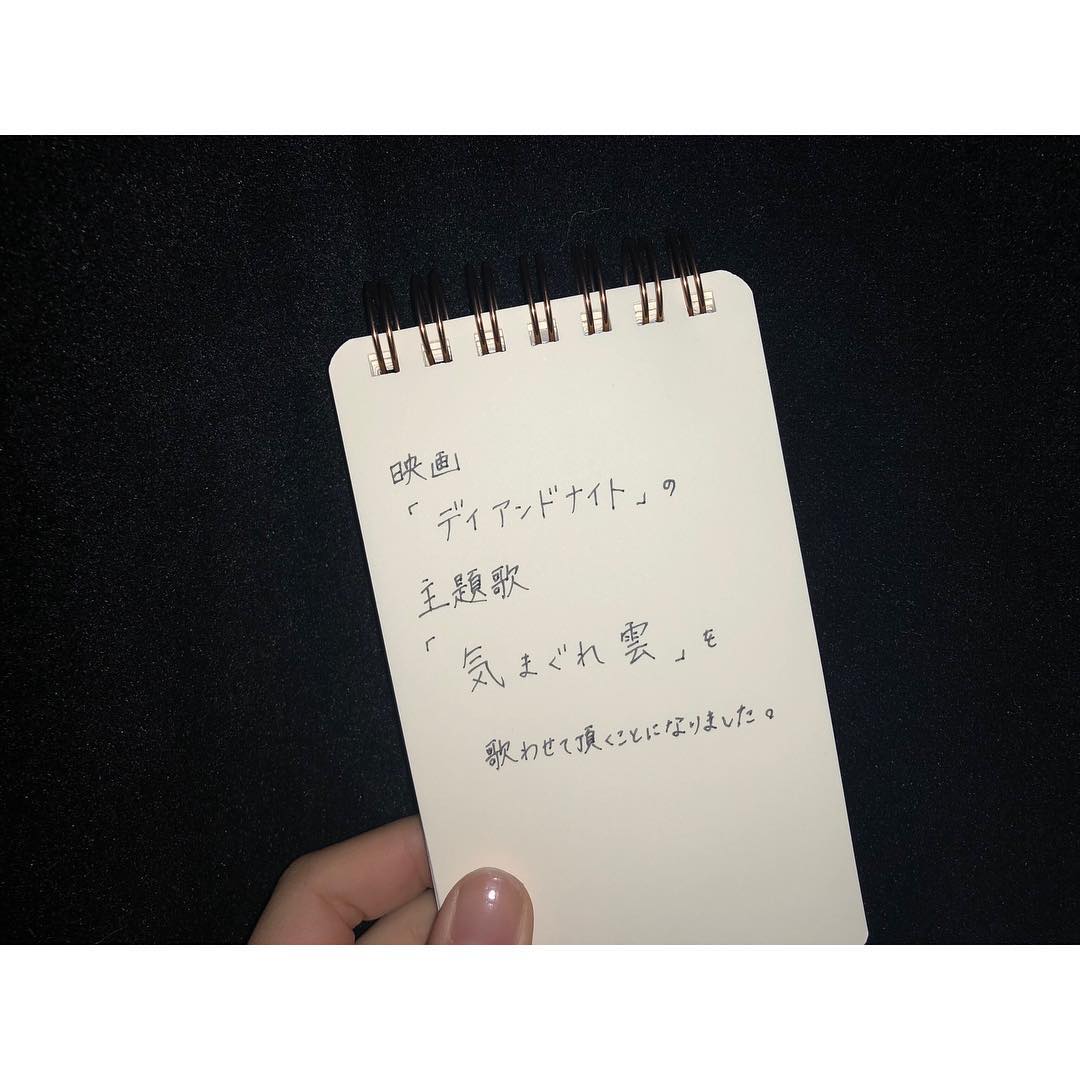 映画
「ディアンドナイト」の
主題歌
「気まぐれ雲」を
歌わせて頂くことになりました。